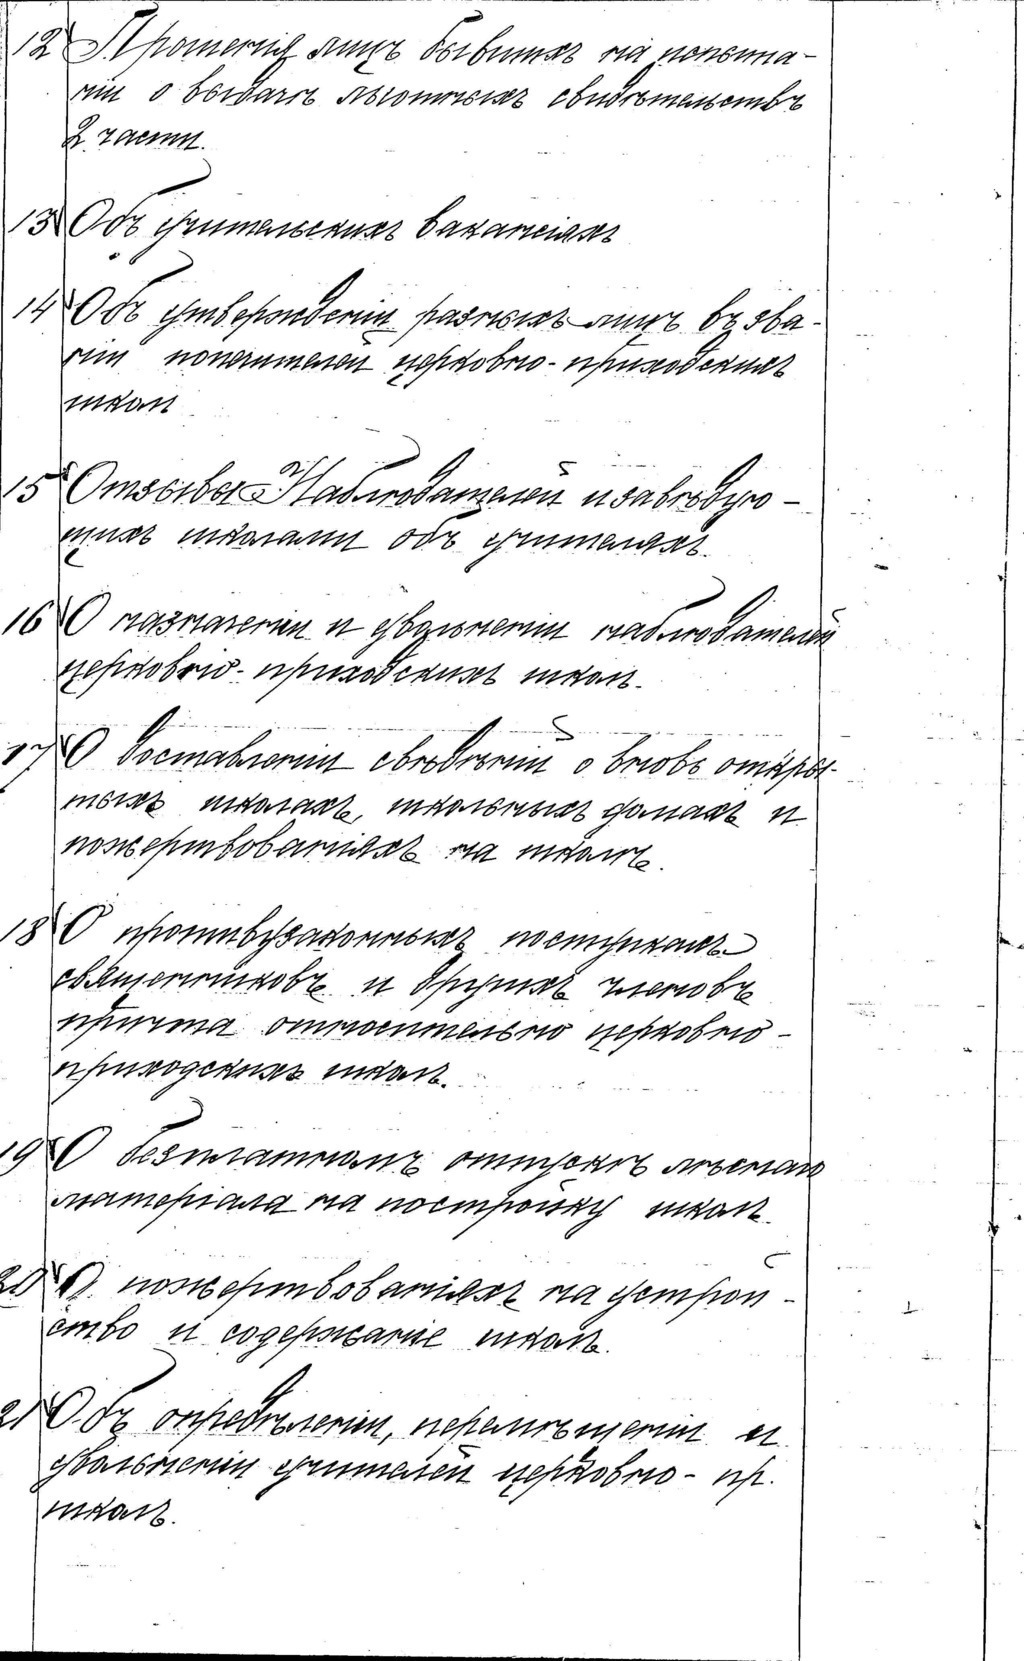 12 Прошенія лицъ бывшихъ на испыта-
ніи о выдачѣ льготныхъ свидѣтельствъ
2 части.
13 Объ учительскихъ вакансіяхъ
14 Объ утвержденіи разныхъ лицъ въ зва-
ніи попечителей церковно-приходскихъ
школ
15 Отзывы Наблюдателей и завѣдую-
щихъ школами объ учителяхъ.
16 О назначеніи и увольненіи наблюдателей
церковно-приходскихъ школъ.
17 О доставленіи свѣдѣній о вновь откры-
тыхъ школахъ, школьныхъ домахъ и
пожертвованіяхъ на школы.
18 О противузаконныхъ поступкахъ
священниковъ и другихъ членовъ
причта относительно церковно-
приходскихъ школъ.
19 О безплатномъ отпускѣ лѣснаго
матеріала на постройку школъ.
20 О пожертвованіяхъ на устрой-
ство и содержаніе школъ.
21 Объ опредѣленіи, перемѣщеніи и
увольненіи учителей церковно-пр.
школъ.